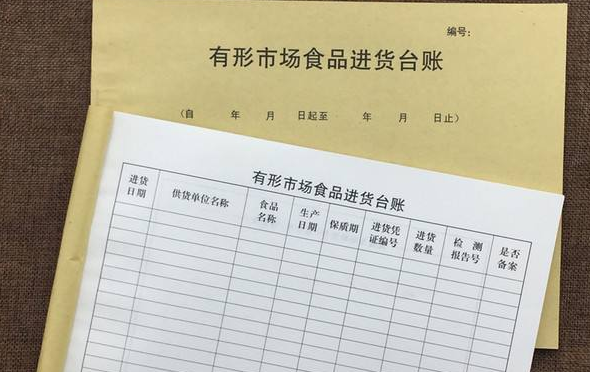 编号:
有形市场食品进货台账
(自 年 月 日起至 年 月 日止)
有形市场食品进货台账
进货日期 供货单位名称 食品名称 生产日期 保质期 进货凭证编号 进货数量 检测报告号 是否备案